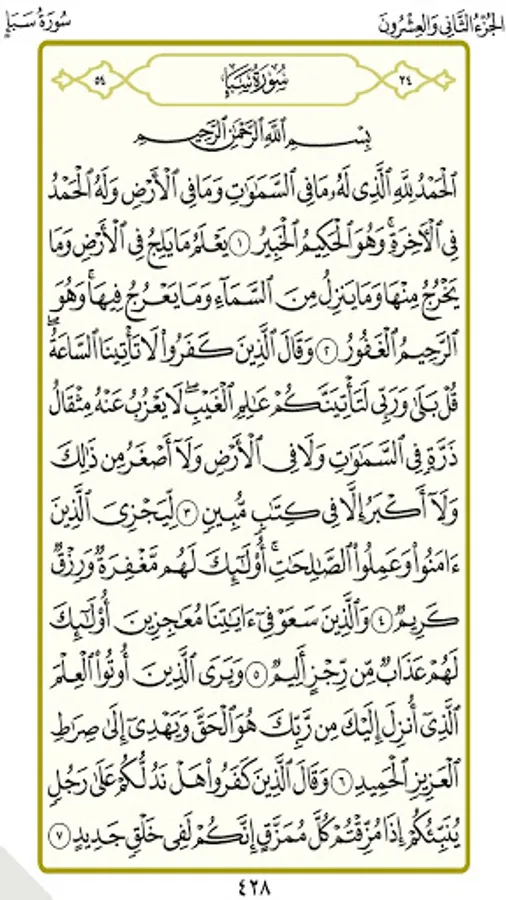 الجُزْءُ الثَّانِي وَالعِشْرُونَ
سُورَةُ سَبَإٍ
٣٤
سُورَةُ سَبَإٍ
٥٤
بِسْمِ ٱللَّهِ ٱلرَّحْمَٰنِ ٱلرَّحِيمِ
ٱلْحَمْدُ لِلَّهِ ٱلَّذِى لَهُۥ مَا فِى ٱلسَّمَٰوَٰتِ وَمَا فِى ٱلْأَرْضِ وَلَهُ ٱلْحَمْدُ
فِى ٱلْءَاخِرَةِ ۚ وَهُوَ ٱلْحَكِيمُ ٱلْخَبِيرُ ١ يَعْلَمُ مَا يَلِجُ فِى ٱلْأَرْضِ وَمَا
يَخْرُجُ مِنْهَا وَمَا يَنزِلُ مِنَ ٱلسَّمَآءِ وَمَا يَعْرُجُ فِيهَا ۚ وَهُوَ
ٱلرَّحِيمُ ٱلْغَفُورُ ٢ وَقَالَ ٱلَّذِينَ كَفَرُوا۟ لَا تَأْتِينَا ٱلسَّاعَةُ ۖ
قُلْ بَلَىٰ وَرَبِّى لَتَأْتِيَنَّكُمْ عَٰلِمِ ٱلْغَيْبِ ۖ لَا يَعْزُبُ عَنْهُ مِثْقَالُ
ذَرَّةٍ فِى ٱلسَّمَٰوَٰتِ وَلَا فِى ٱلْأَرْضِ وَلَآ أَصْغَرُ مِن ذَٰلِكَ
وَلَآ أَكْبَرُ إِلَّا فِى كِتَٰبٍ مُّبِينٍ ٣ لِّيَجْزِىَ ٱلَّذِينَ
ءَامَنُوا۟ وَعَمِلُوا۟ ٱلصَّٰلِحَٰتِ ۚ أُو۟لَٰٓئِكَ لَهُم مَّغْفِرَةٌ وَرِزْقٌ
كَرِيمٌ ٤ وَٱلَّذِينَ سَعَوْ فِىٓ ءَايَٰتِنَا مُعَٰجِزِينَ أُو۟لَٰٓئِكَ
لَهُمْ عَذَابٌ مِّن رِّجْزٍ أَلِيمٌ ٥ وَيَرَى ٱلَّذِينَ أُوتُوا۟ ٱلْعِلْمَ
ٱلَّذِىٓ أُنزِلَ إِلَيْكَ مِن رَّبِّكَ هُوَ ٱلْحَقَّ وَيَهْدِىٓ إِلَىٰ صِرَٰطِ
ٱلْعَزِيزِ ٱلْحَمِيدِ ٦ وَقَالَ ٱلَّذِينَ كَفَرُوا۟ هَلْ نَدُلُّكُمْ عَلَىٰ رَجُلٍ
يُنَبِّئُكُمْ إِذَا مُزِّقْتُمْ كُلَّ مُمَزَّقٍ إِنَّكُمْ لَفِى خَلْقٍ جَدِيدٍ ٧
٤٢٨